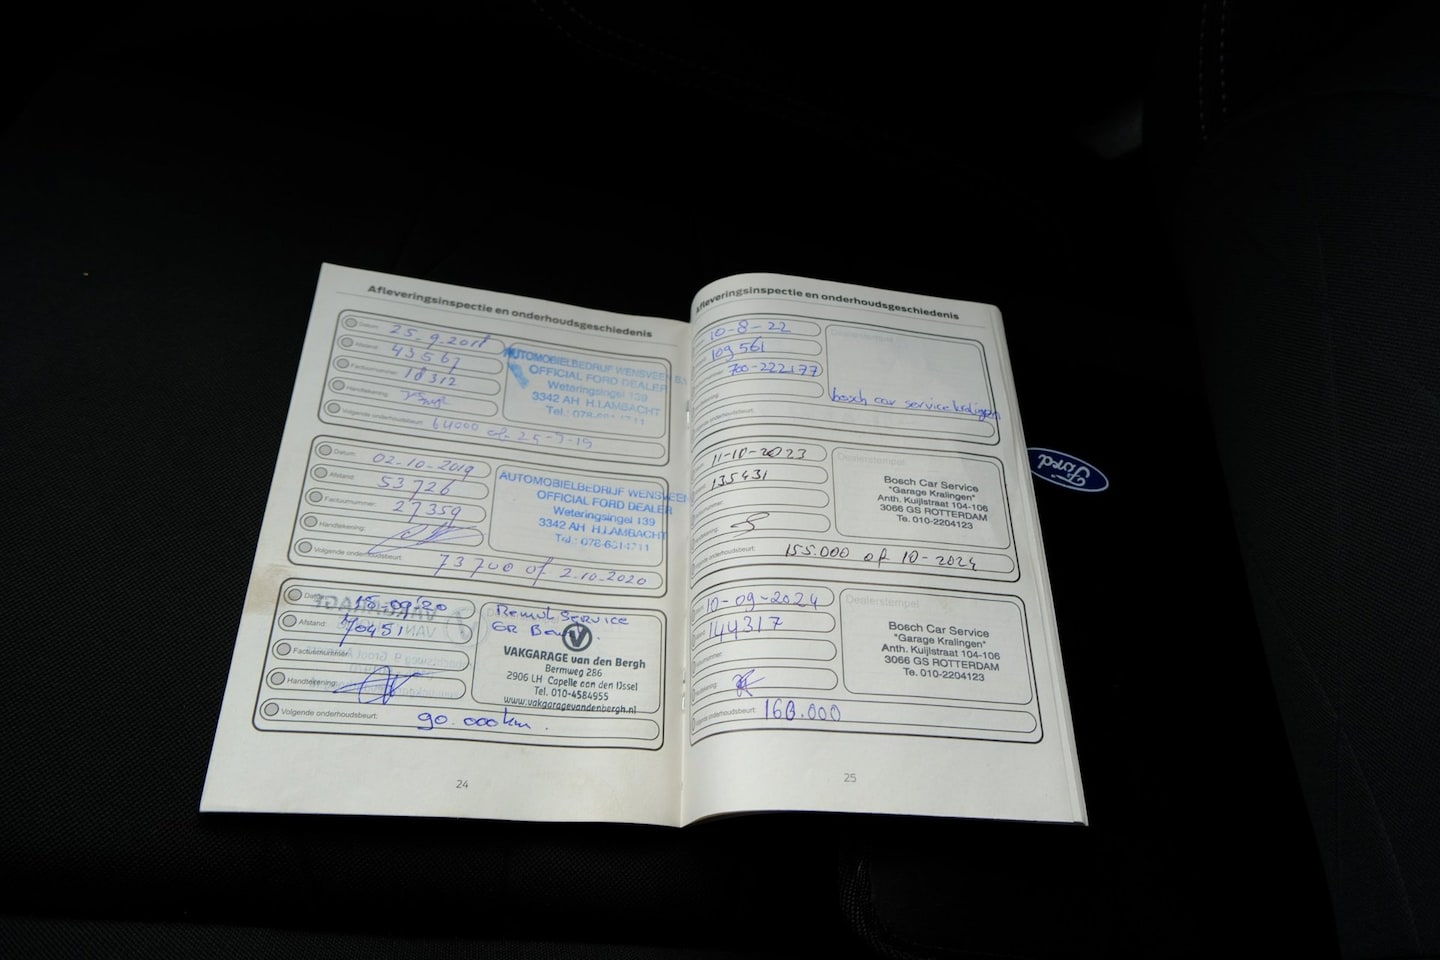 Afleveringsinspectie en onderhoudsgeschiedenis
Datum: 25-9-2018
Afstand: 43567
Factuurnummer: 18312
Handtekening:
Volgende onderhoudsbeurt: 64000 of 25-9-19
AUTOMOBIELBEDRIJF WENSVEEN B.V.
OFFICIAL FORD DEALER
Weteringsingel 139
3342 AH H.I.AMBACHT
Tel.: 078-6814711
Datum: 02-10-2019
Afstand: 53726
Factuurnummer: 27359
Handtekening:
Volgende onderhoudsbeurt: 73700 of 2-10-2020
AUTOMOBIELBEDRIJF WENSVEEN
OFFICIAL FORD DEALER
Weteringsingel 139
3342 AH H.I.AMBACHT
Tel.: 078-6814711
Datum: 15-09-'20
Afstand: 70451
Factuurnummer:
Handtekening:
Volgende onderhoudsbeurt: 90.000km.
Service
GR
VAKGARAGE van den Bergh
Bermweg 286
2906 LH Capelle aan den IJssel
Tel. 010-4584955
www.vakgaragevandenbergh.nl
24
Afleveringsinspectie en onderhoudsgeschiedenis
10-8-22
109561
700-222177
bosch car service kralingen
11-10-2023
135431
155.000 of 10-2024
Dealerstempel
Bosch Car Service
"Garage Kralingen"
Anth. Kuijlstraat 104-106
3066 GS ROTTERDAM
Te. 010-2204123
10-09-2024
144317
onderhoudsbeurt: 160.000
Dealerstempel
Bosch Car Service
"Garage Kralingen"
Anth. Kuijlstraat 104-106
3066 GS ROTTERDAM
Te. 010-2204123
25
Ford